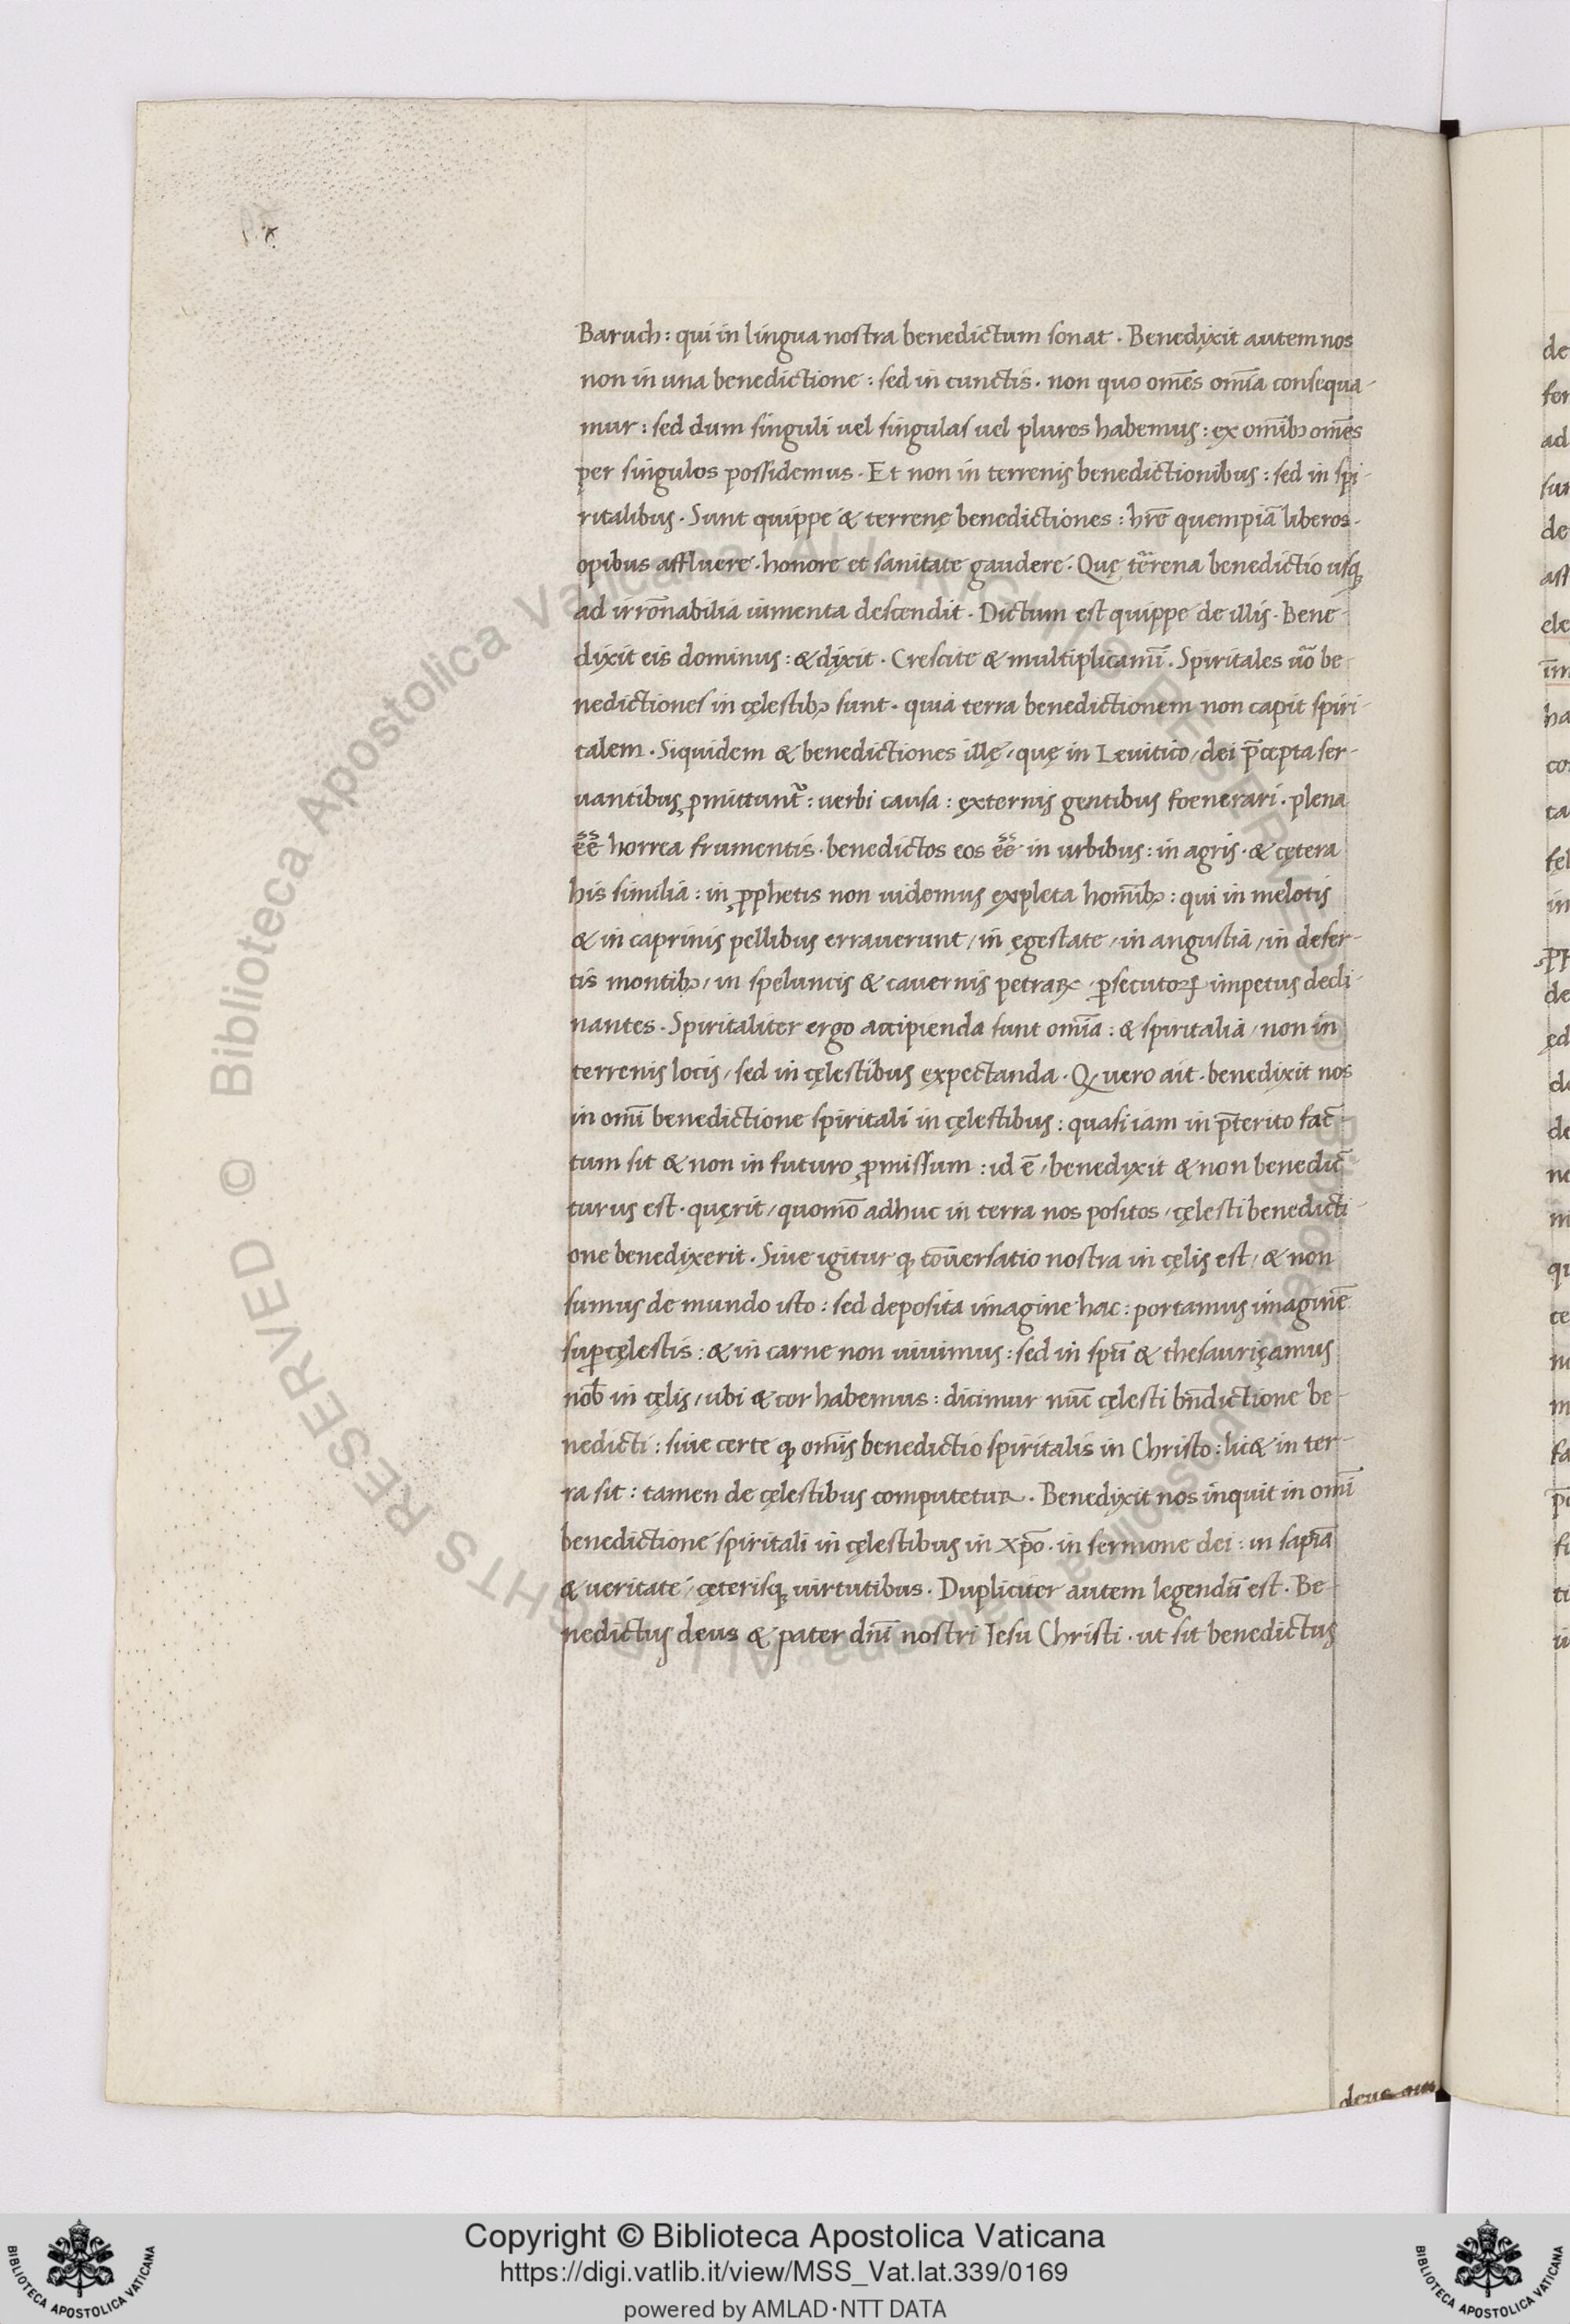 Baruch: qui in lingua nostra benedictum sonat. Benedixit autem nos
non in una benedictione: sed in cunctis. non quo om̅es om̅ia consequa-
mur: sed dum singuli uel singulas uel plures habemus: ex om̅ibꝫ om̅es
per singulos possidemus. Et non in terrenis benedictionibus: sed in spi-
ritalibus. Sunt quippe & terrenę benedictiones: hr̅e quempiā liberos.
opibus affluere. honore et sanitate gaudere. Quę terrena benedictio usqꝫ
ad irro̅nabilia iumenta descendit. Dictum est quippe de illis. Bene-
dixit eis dominus: & dixit. Crescite & multiplicami̅. Spiritales uo̅ be-
nedictiones in cęlestibꝫ sunt. quia terra benedictionem non capit spiri-
talem. Siquidem & benedictiones illę, quę in Leuitico, dei p̅cepta ser-
uantibus ꝓmittunt᷑: uerbi causa: externis gentibus foenerari. plena
ee̅ horrea frumentis. benedictos eos ee̅ in urbibus: in agris. & cętera
his similia: in ꝓphetis non uidemus expleta hom̅ibꝫ: qui in melotis
& in caprinis pellibus errauerunt, in egestate, in angustia, in deser-
tis montibꝫ, in speluncis & cauernis petraꝝ, ꝑsecutoꝝ impetus decli-
nantes. Spiritaliter ergo accipienda sunt om̅ia: & spiritalia, non in
terrenis locis, sed in cęlestibus expectanda. Qꝫ uero ait. benedixit nos
in om̅i benedictione spiritali in cęlestibus: quasi iam in p̅terito fac-
tum sit & non in futuro ꝓmissum: id ē, benedixit & non benedic-
turus est. quęrit, quomō adhuc in terra nos positos, cęlesti benedicti-
one benedixerit. Siue igitur qꝫ co̅uersatio nostra in cęlis est, & non
sumus de mundo isto: sed deposita imagine hac: portamus imaginē
suꝑcęlestis: & in carne non uiuimus: sed in spū & thesauriçamus
nob̅ in cęlis, ubi & cor habemus: dicimur nūc cęlesti bn̅dictione be-
nedicti: siue certe qꝫ om̅is benedictio spiritalis in Christo: lic& in ter-
ra sit: tamen de cęlestibus computetur. Benedixit nos inquit in om̅i
benedictione spiritali in cęlestibus in xp̅o. in sermone dei: in sapi̅a
& ueritate, cęterisqꝫ uirtutibus. Dupliciter autem legendū est. Be-
nedictus deus & pater dn̅i nostri Iesu Christi. ut sit benedictus
deus
Copyright © Biblioteca Apostolica Vaticana
https://digi.vatlib.it/view/MSS_Vat.lat.339/0169
powered by AMLAD·NTT DATA
BIBLIOTECA APOSTOLICA VATICANA
BIBLIOTECA APOSTOLICA VATICANA